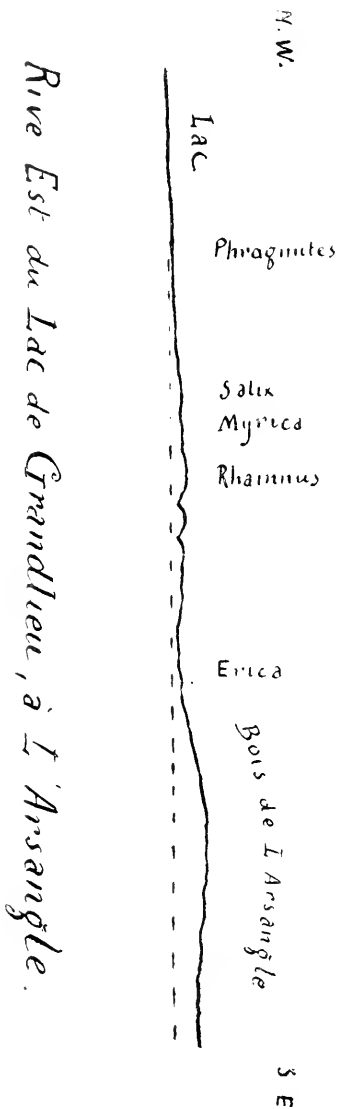 N.W.
S E
Lac
Phragmites
Salix
Myrica
Rhamnus
Erica
Bois de L'Arsangle
Rive Est du Lac de Grandlieu, à L'Arsangle.